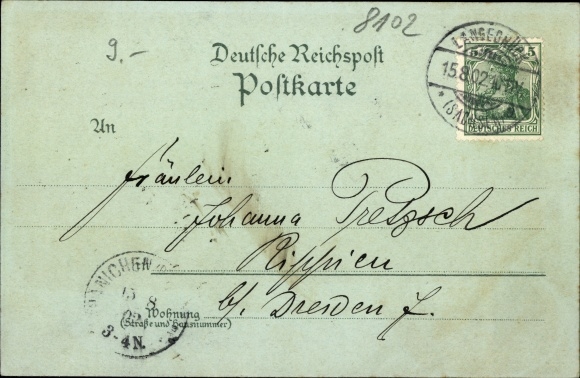 8102
9.-
Deutsche Reichspost
Postkarte
5
15.8.02
(SACHSEN)
DEUTSCHES REICH
An
Fräulein
Johanna Pretzsch
Rippien
b/ Dresden
HÄNICHEN
15 8
02
3-4N.
Wohnung
(Straße und Hausnummer)